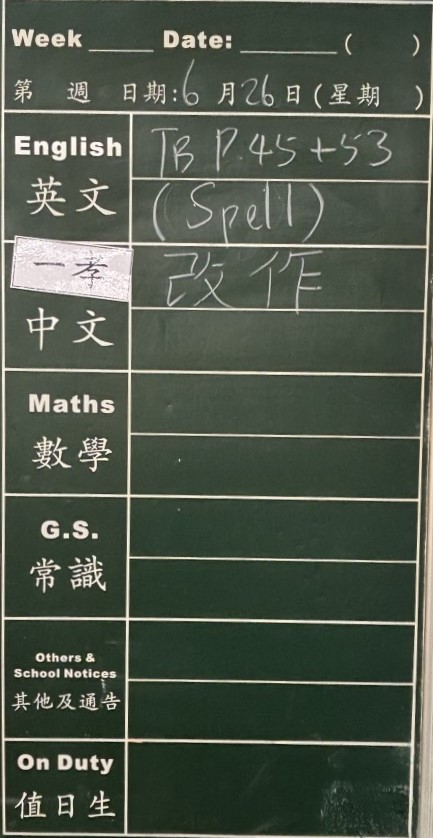 Week ____ Date: ________ ( )
第 週 日期:6月26日(星期 )
English TB P.45+53
英文 (Spell)
一孝 改作
中文
Maths
數學
G.S.
常識
Others &
School Notices
其他及通告
On Duty
值日生